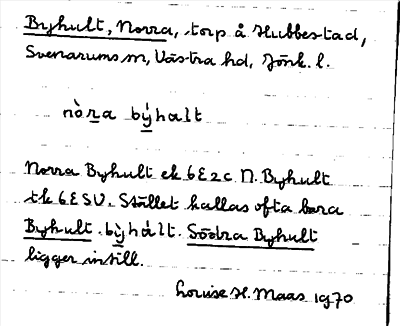 Byhult, Norra, torp å Hubbestad,
Svenarums sn, Västra hd, Jönk. l.
nòra býhalt
Norra Byhult ek 6E2c N. Byhult
tk 6ESV. Stället kallas ofta bara
Byhult. bỳhált. Södra Byhult
ligger intill.
Louise H. Maas 1970